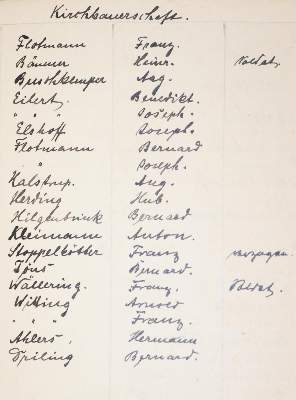 Kirchbauerschaft.
Flotmann Franz.
Bäumer Heinr. Soldat,
Buschkemper Aug.
Eilert, Benedikt.
" " " Joseph.
Elshoff Joseph.
Flotmann Bernard
" Joseph.
Kalstrup. Aug.
Herding Hub.
Hilgenbrink Bernard
Kleimann Anton.
Stoppelkötter Franz verzogen.
Töns Bernard.
Wällering. Franz. Soldat.
Witting Arnold
" " " Franz.
Ahlers, Hermann
Spiling Bernard.